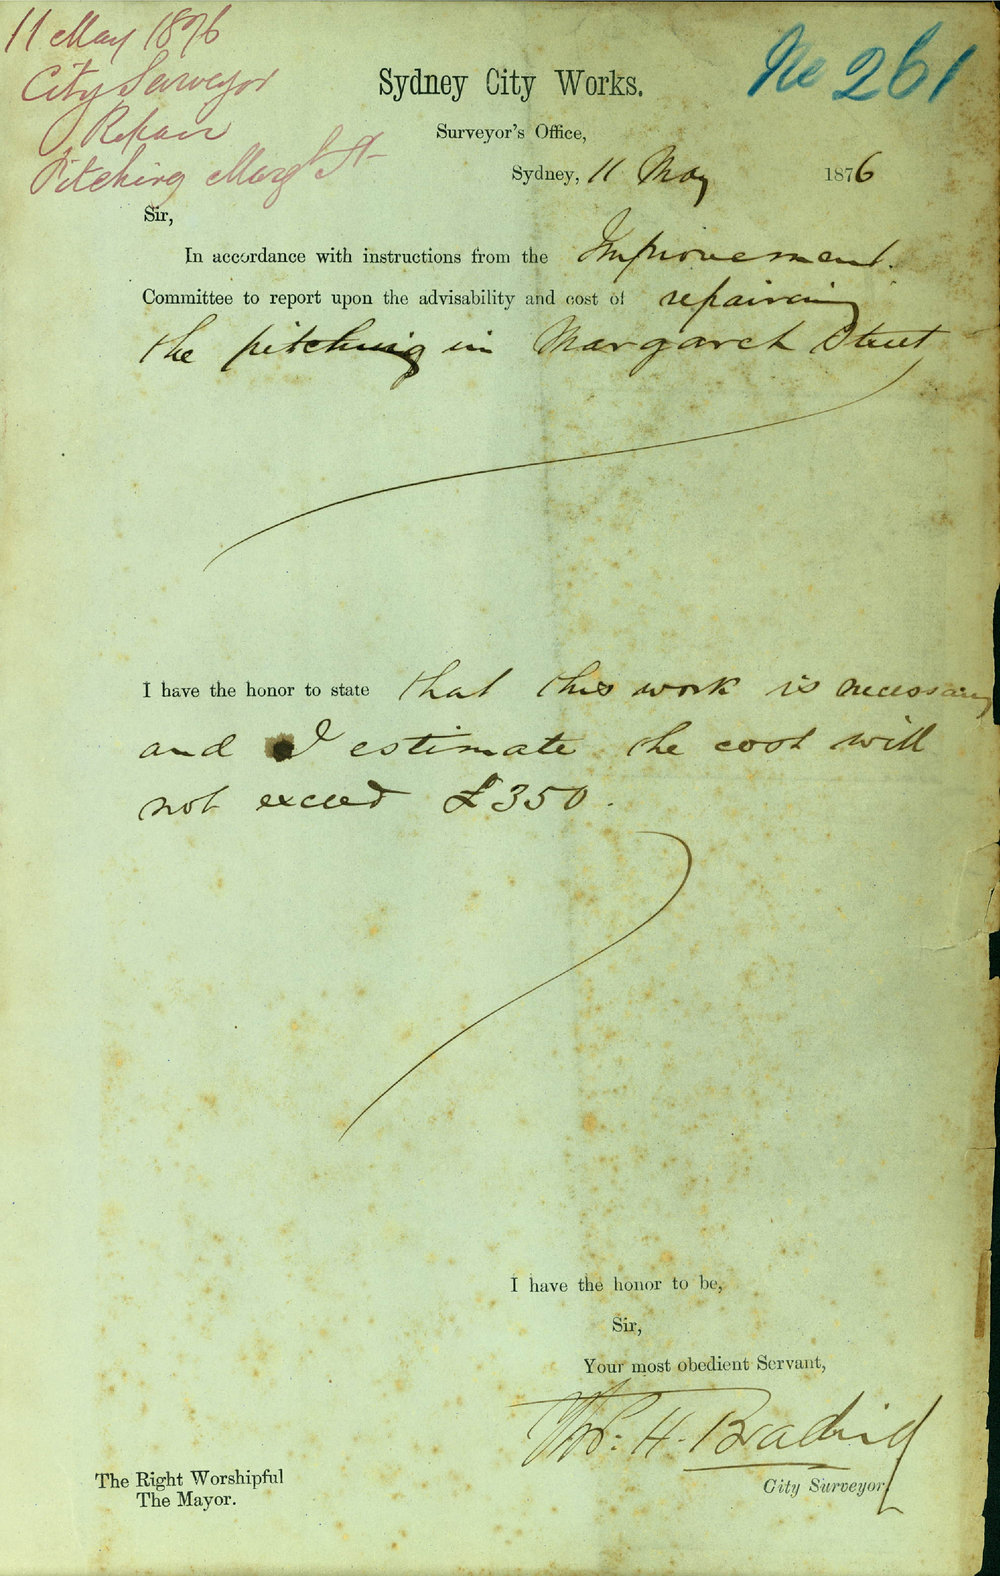 11 May 1876
City Surveyor
Repair
Pitching Margt St
No 261
Sydney City Works.
Surveyor's Office,
Sydney, 11 May 1876
Sir,
In accordance with instructions from the Improvement
Committee to report upon the advisability and cost of repairing
the pitching in Margaret Street
I have the honor to state that this work is necessary
and I estimate the cost will
not exceed £350.
I have the honor to be,
Sir,
Your most obedient Servant,
Thos: H. Bradrid
City Surveyor
The Right Worshipful
The Mayor.